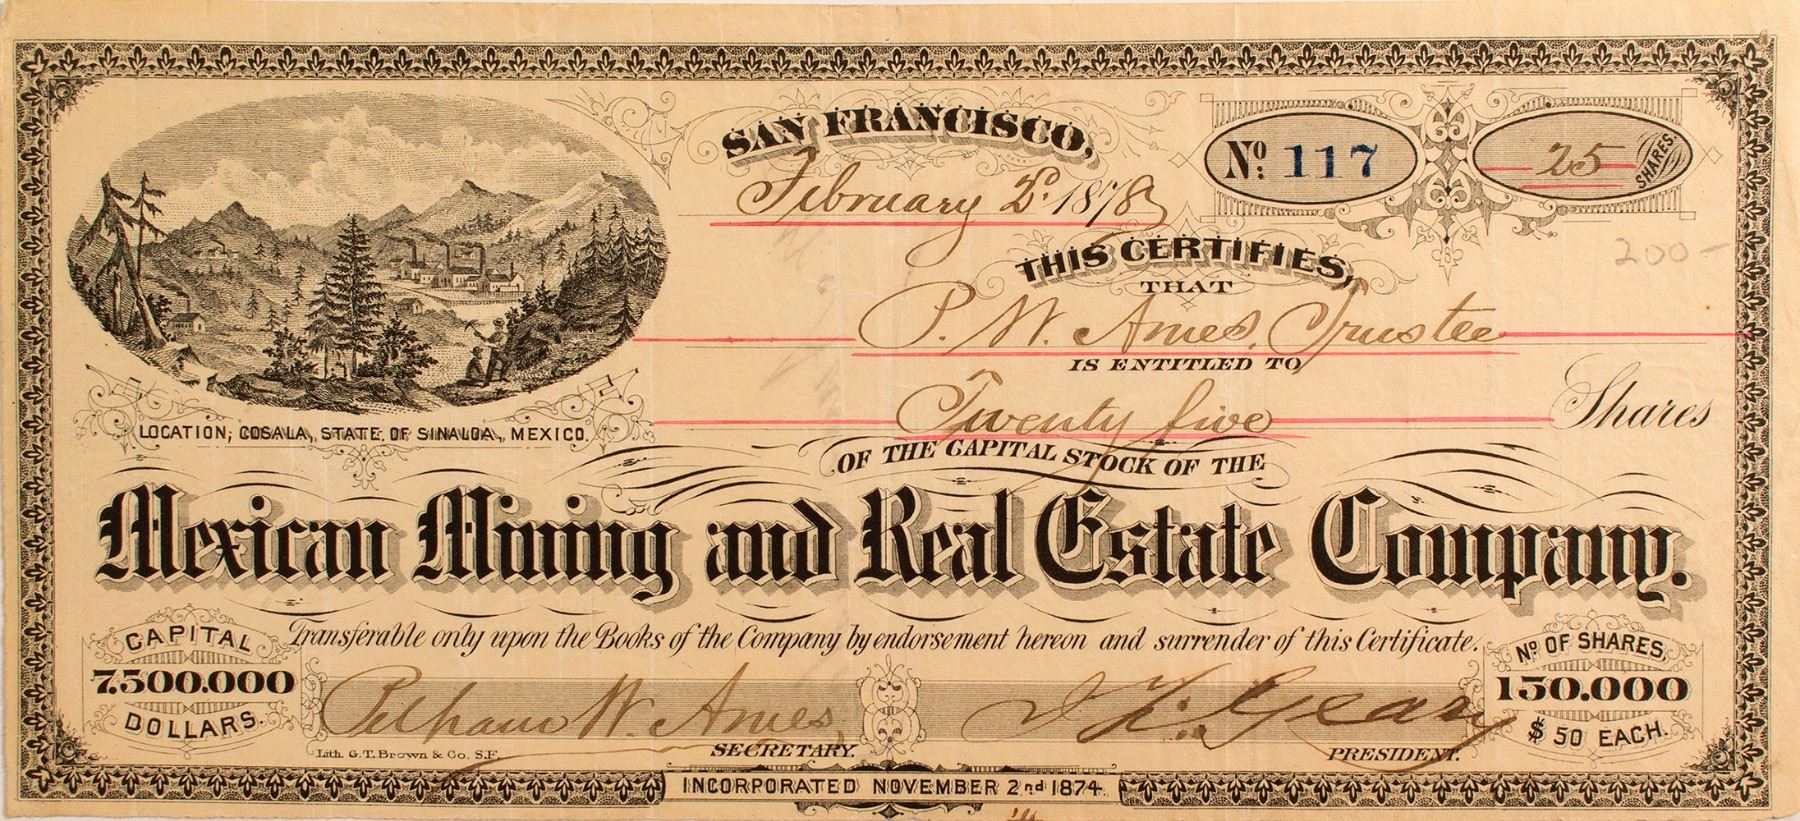 SAN FRANCISCO,
February 2d. 1878
No. 117
25 SHARES.
200-
THIS CERTIFIES
THAT
P. W. Ames, Trustee
IS ENTITLED TO
Twenty five Shares
LOCATION; COSALA, STATE OF SINALOA, MEXICO.
OF THE CAPITAL STOCK OF THE
Mexican Mining and Real Estate Company.
Transferable only upon the Books of the Company by endorsement hereon and surrender of this Certificate.
CAPITAL
7.500.000
DOLLARS.
No. OF SHARES,
150.000
$ 50 EACH.
Pelham W. Ames
SECRETARY.
Geary
PRESIDENT.
Lith. G.T. Brown & Co. S.F.
INCORPORATED NOVEMBER 2nd 1874.